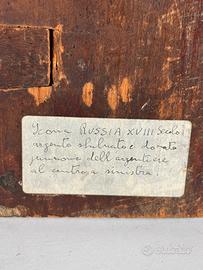 Icona RUSSIA XVIII Secolo
argento sbalzato e dorato
punzone dell'argentiere
al centro a sinistra.
subito